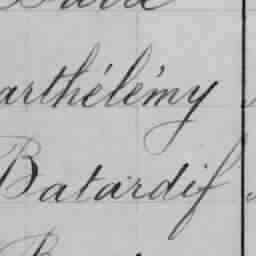 arthélémy
Batardif